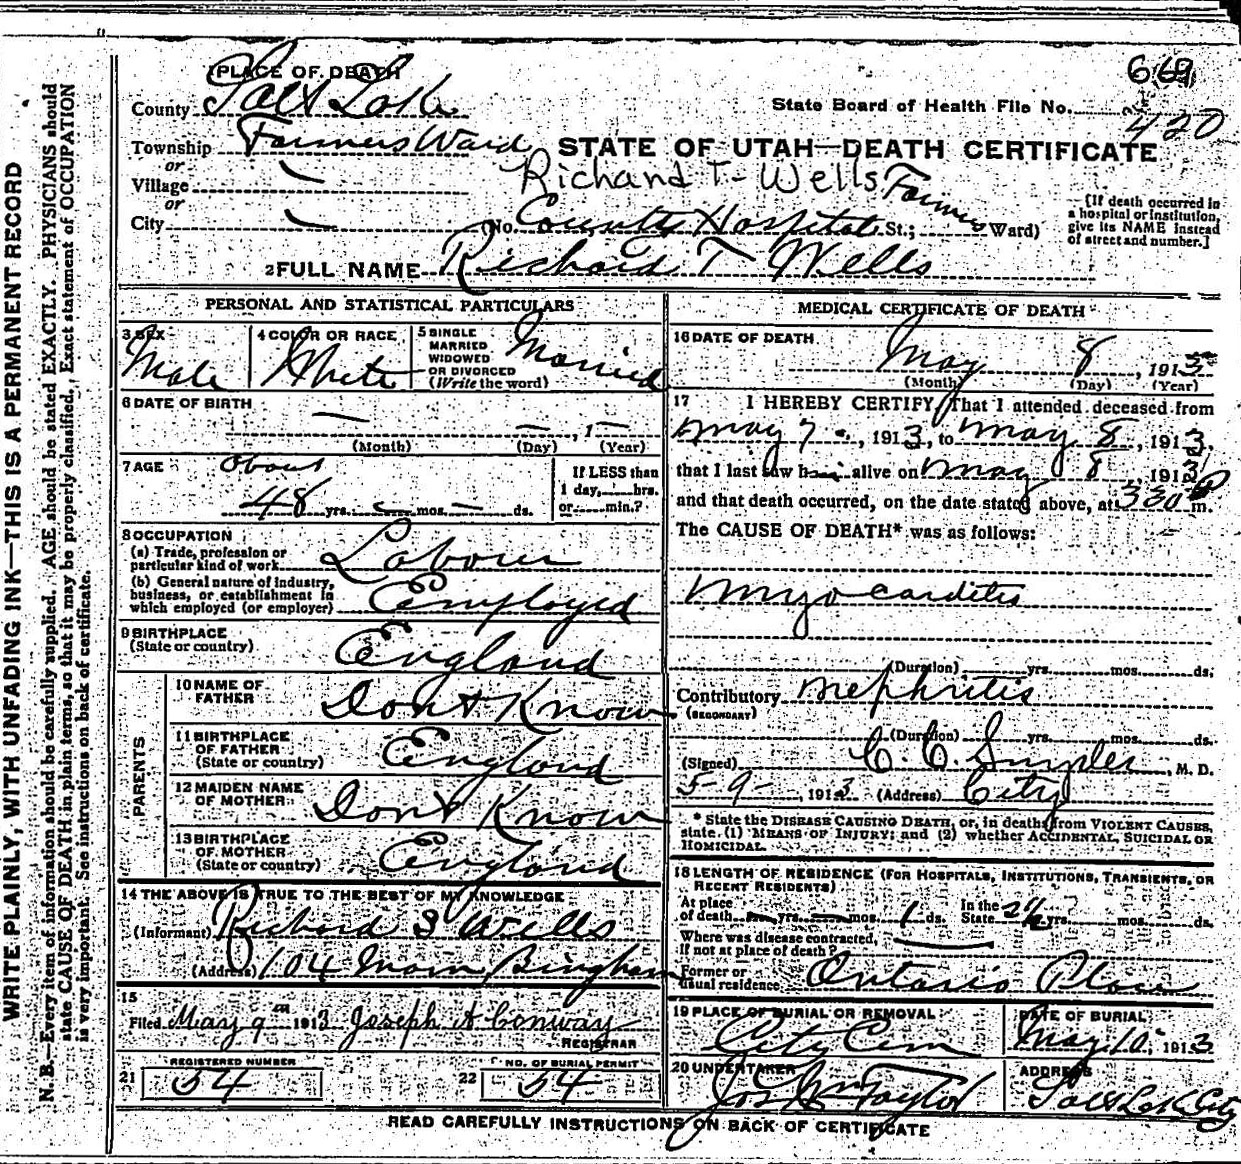 669
PLACE OF DEATH
County Salt Lake
State Board of Health File No. 420
Township Farmers Ward
STATE OF UTAH—DEATH CERTIFICATE
or
Village
Richard T- Wells
or
City
(No. County Hospital St.; Farmers Ward)
[If death occurred in
a hospital or institution,
give its NAME instead
of street and number.]
2 FULL NAME Richard T Wells
PERSONAL AND STATISTICAL PARTICULARS
3 SEX
Male
4 COLOR OR RACE
White
5 SINGLE
MARRIED
WIDOWED
OR DIVORCED
(Write the word)
Married
6 DATE OF BIRTH
— — , 1—
(Month) (Day) (Year)
7 AGE about
48 yrs. — mos. — ds.
If LESS than
1 day, hrs.
or min.?
8 OCCUPATION
(a) Trade, profession or
particular kind of work Labour
(b) General nature of industry,
business, or establishment in
which employed (or employer) Employed
9 BIRTHPLACE
(State or country) England
PARENTS
10 NAME OF
FATHER Dont Know
11 BIRTHPLACE
OF FATHER
(State or country) England
12 MAIDEN NAME
OF MOTHER Dont Know
13 BIRTHPLACE
OF MOTHER
(State or country) England
14 THE ABOVE IS TRUE TO THE BEST OF MY KNOWLEDGE
(Informant) Richard S Wells
(Address) 104 Main, Bingham
15
Filed May 9th 1913 Joseph A Conway
REGISTRAR
REGISTERED NUMBER
21 54
NO. OF BURIAL PERMIT
22 54
MEDICAL CERTIFICATE OF DEATH
16 DATE OF DEATH
May 8, 1913
(Month) (Day) (Year)
17 I HEREBY CERTIFY, That I attended deceased from
May 7, 1913, to May 8, 1913,
that I last saw h alive on May 8, 1913,
and that death occurred, on the date stated above, at 330 P m.
The CAUSE OF DEATH* was as follows:
Myocarditis
(Duration) yrs. mos. ds.
Contributory Nephritis
(SECONDARY)
(Duration) yrs. mos. ds.
(Signed) C. C. Snyder, M. D.
5-9-, 1913 (Address) City
* State the DISEASE CAUSING DEATH, or, in deaths from VIOLENT CAUSES,
state (1) MEANS OF INJURY; and (2) whether ACCIDENTAL, SUICIDAL OR
HOMICIDAL.
18 LENGTH OF RESIDENCE (FOR HOSPITALS, INSTITUTIONS, TRANSIENTS, OR
RECENT RESIDENTS)
At place
of death — yrs. — mos. 1 ds.
In the
State yrs. mos. ds.
Where was disease contracted,
if not at place of death?
Former or
usual residence Ontario Place
19 PLACE OF BURIAL OR REMOVAL
City Cem
DATE OF BURIAL
May 10, 1913
20 UNDERTAKER
Jos Wm Taylor
ADDRESS
Salt Lake City
READ CAREFULLY INSTRUCTIONS ON BACK OF CERTIFICATE
WRITE PLAINLY, WITH UNFADING INK—THIS IS A PERMANENT RECORD
N. B.—Every item of information should be carefully supplied. AGE should be stated EXACTLY. PHYSICIANS should
state CAUSE OF DEATH in plain terms, so that it may be properly classified. Exact statement of OCCUPATION
is very important. See instructions on back of certificate.